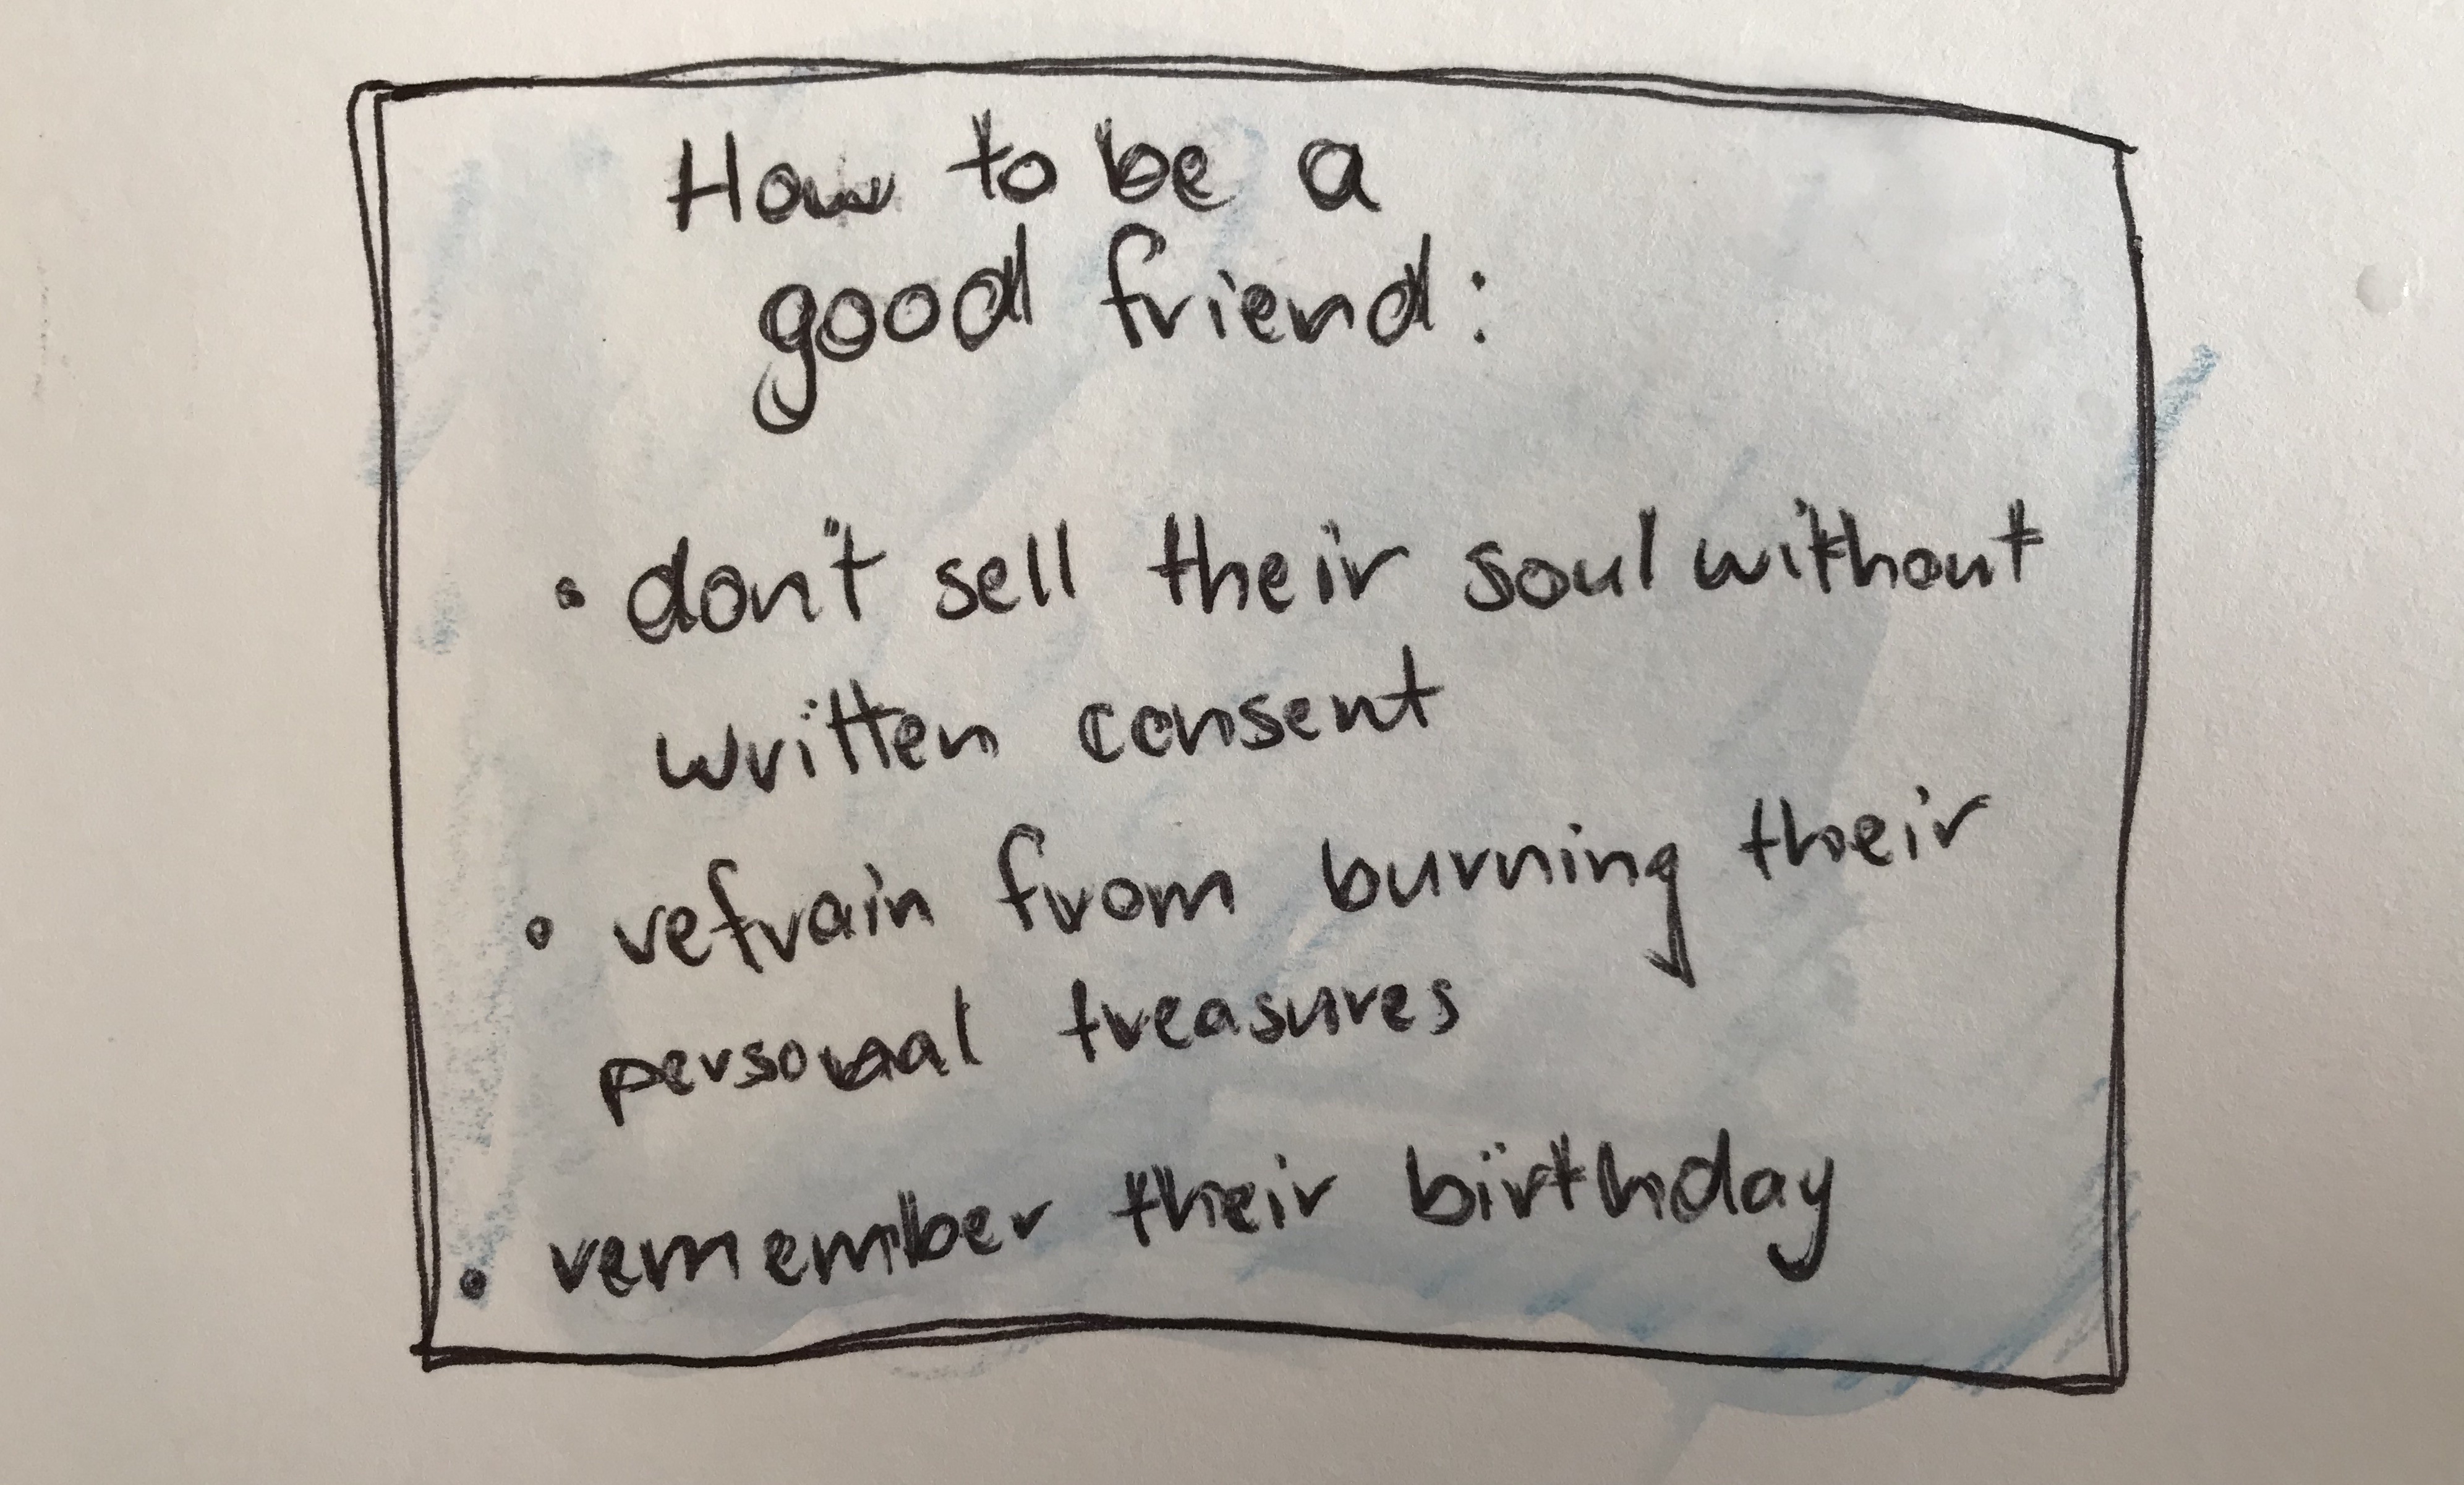 How to be a
good friend:
• don't sell their soul without
written consent
• refrain from burning their
personal treasures
• remember their birthday